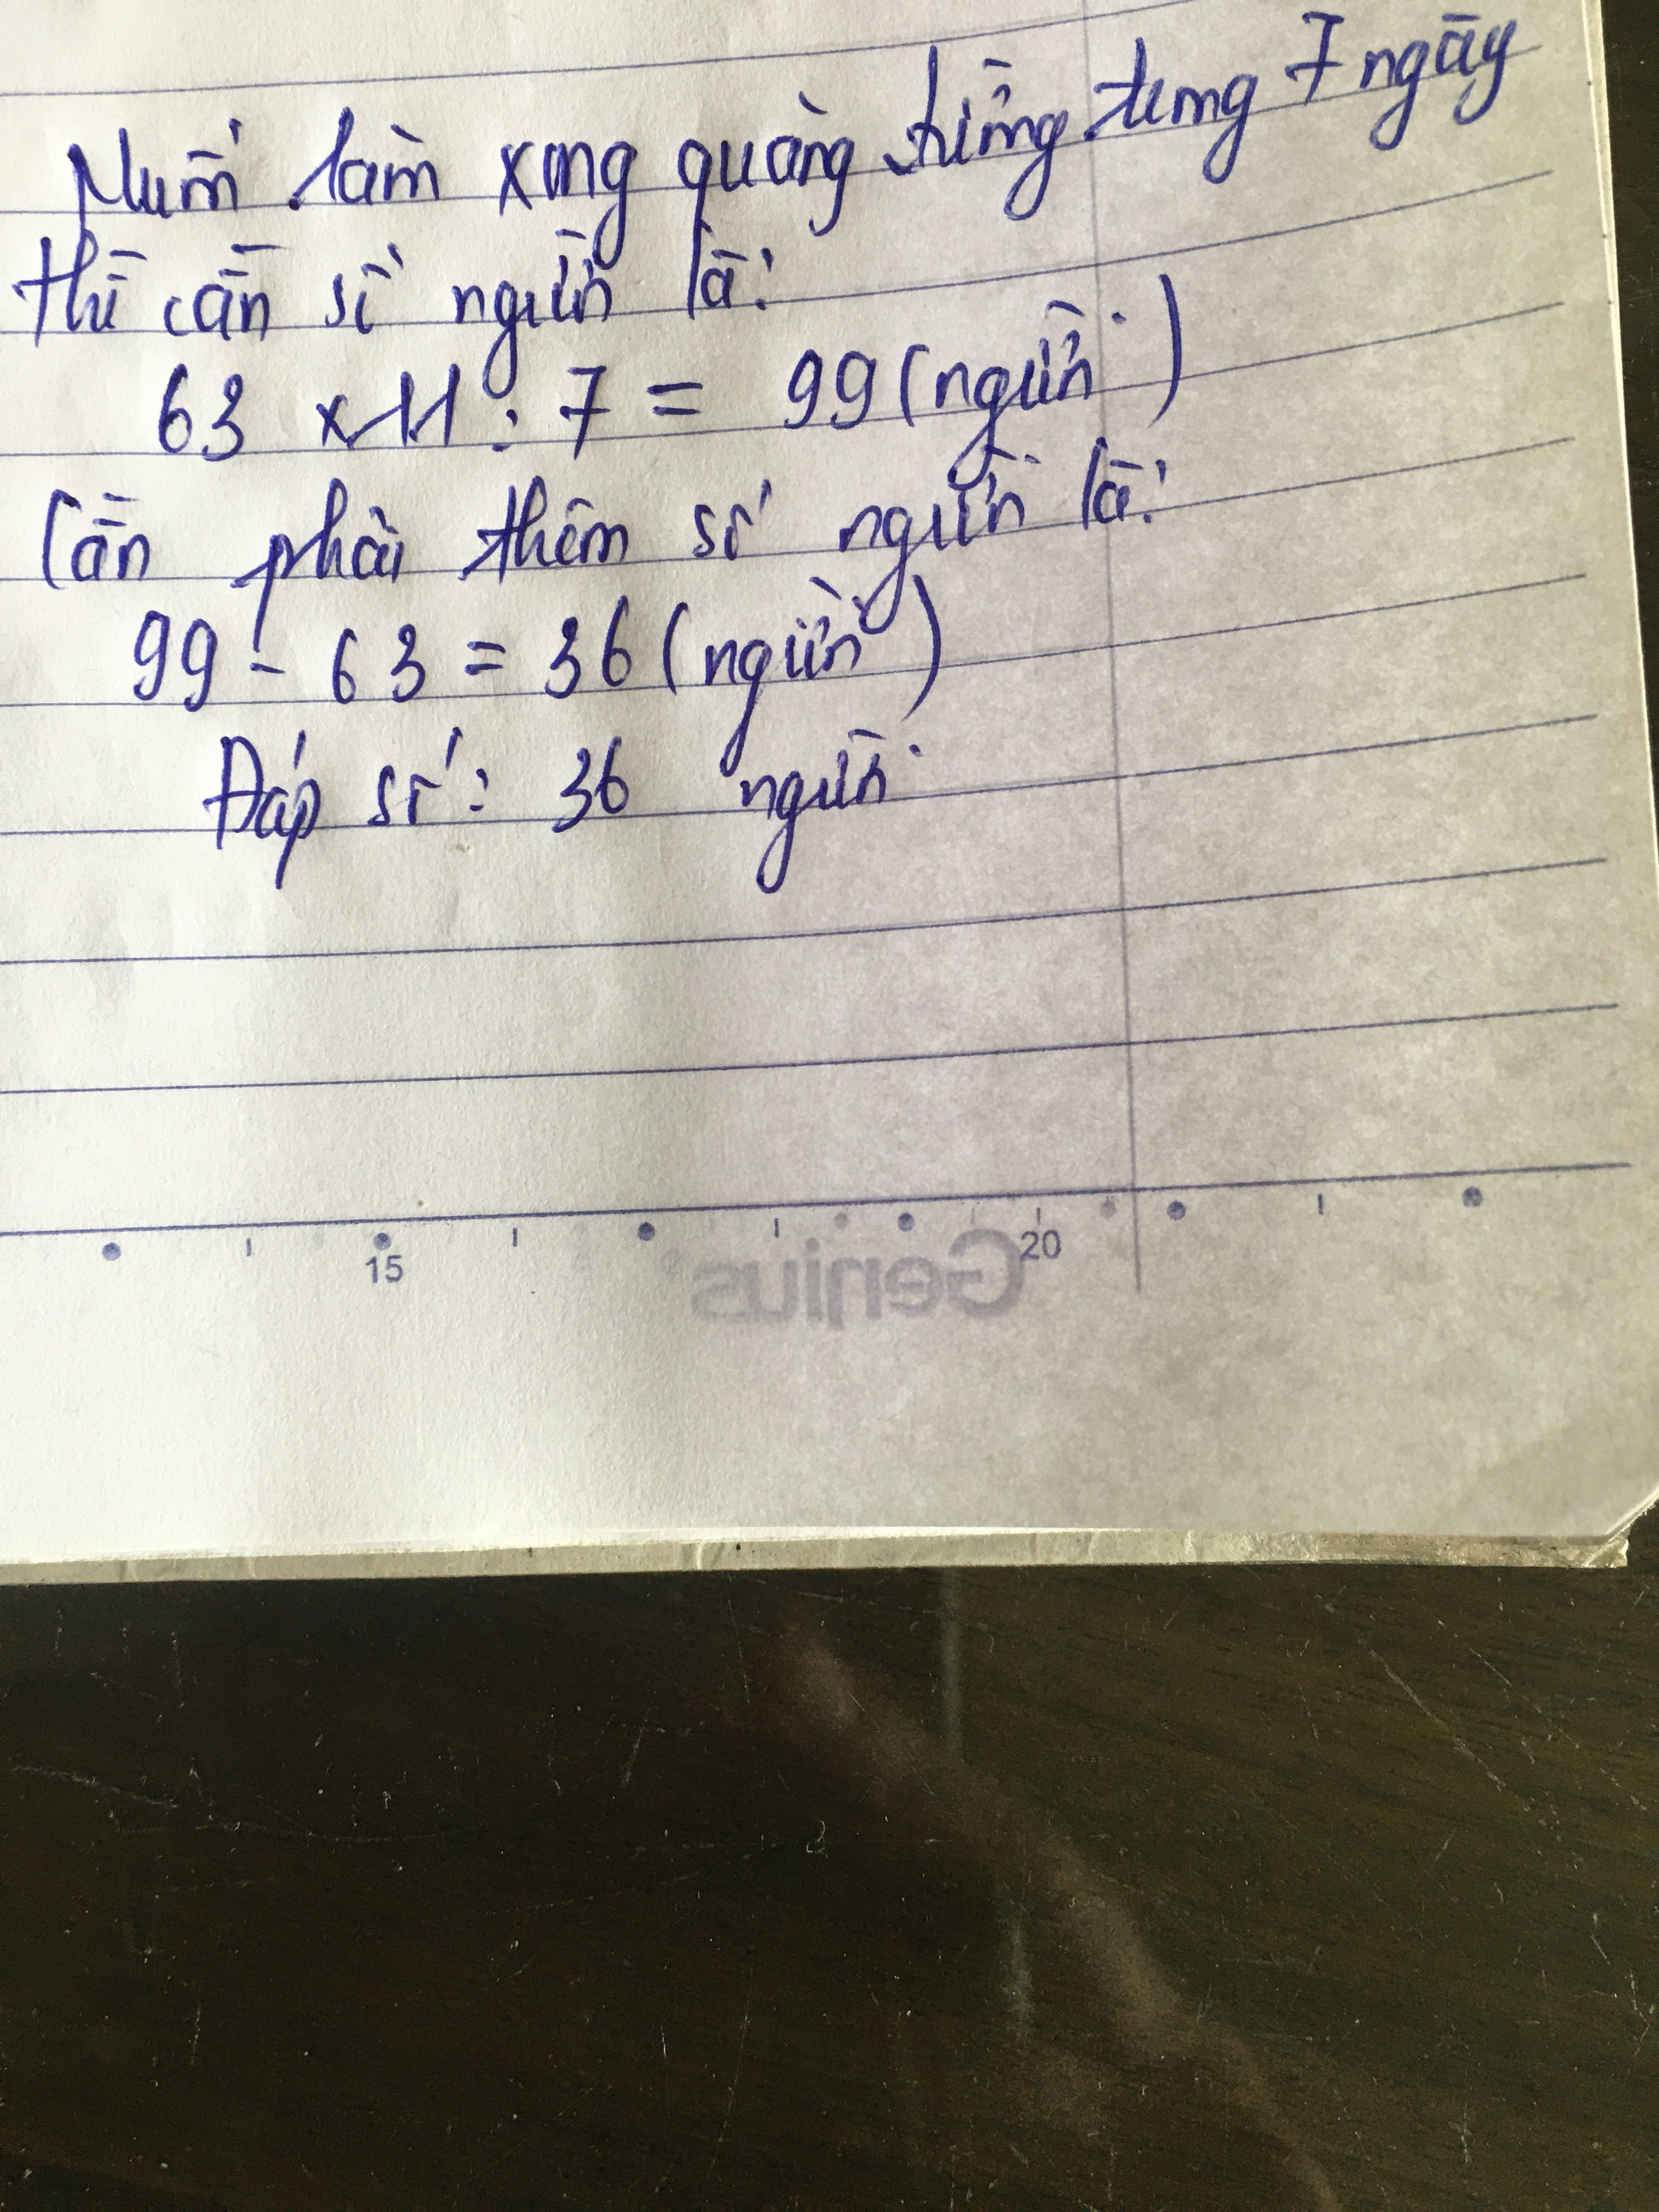 Muốn làm xong quãng đường trong 7 ngày
thì cần số người là:
63 x 11 : 7 = 99 (người)
Cần phải thêm số người là:
99 - 63 = 36 (người)
Đáp số: 36 người
15 20
Genius